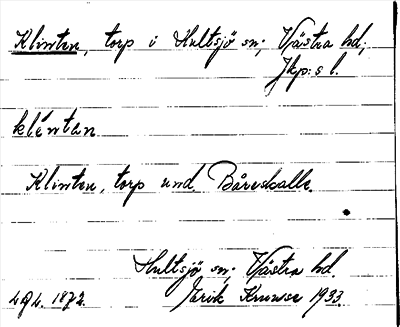 Klinten, torp i Hultsjö sn; Västra hd;
Jkp:s l.
klèntan
Klinten, torp und. Båreskalle.
Hultsjö sn. Västra hd.
Lgh. 1872. Jarik Kruuse 1933.